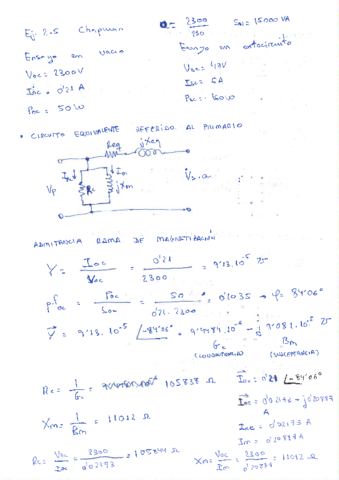 Ej: 2.5 Chapman
a = 2300/230 Sn = 15000 VA
Ensayo en vacío
Ensayo en cortocircuito
Voc = 2300 V
Vsc = 47 V
Ioc = 0'21 A
Isc = 6 A
Poc = 50 W
Psc = 160 W
• CIRCUITO EQUIVALENTE REFERIDO AL PRIMARIO
Req jXeq
Ic Im
Vp Rc jXm Vs.a
ADMITANCIA RAMA DE MAGNETIZACIÓN
Y = Ioc/Voc = 0'21/2300 = 9'13.10^-5 ℧
pfoc = Poc/Soc = 50/0'21.2300 = 0'1035 → φ = 84'06°
Y = 9'13.10^-5 ∠-84'06° = 9'4484.10^-6 - j 9'081.10^-5 ℧
Gc Bm
(CONDUCTANCIA) (SUSCEPTANCIA)
Rc = 1/Gc = 105838 Ω
Ioc = 0'21 ∠-84'06°
Xm = 1/Bm = 11012 Ω
Ioc = 0'02173 - j0'20887 A
Ioc = 0'02173 A
Im = 0'20887 A
Rc = Voc/Ioc = 2300/0'02173 = 105844 Ω
Xm = Voc/Im = 2300/0'20887 = 11012 Ω